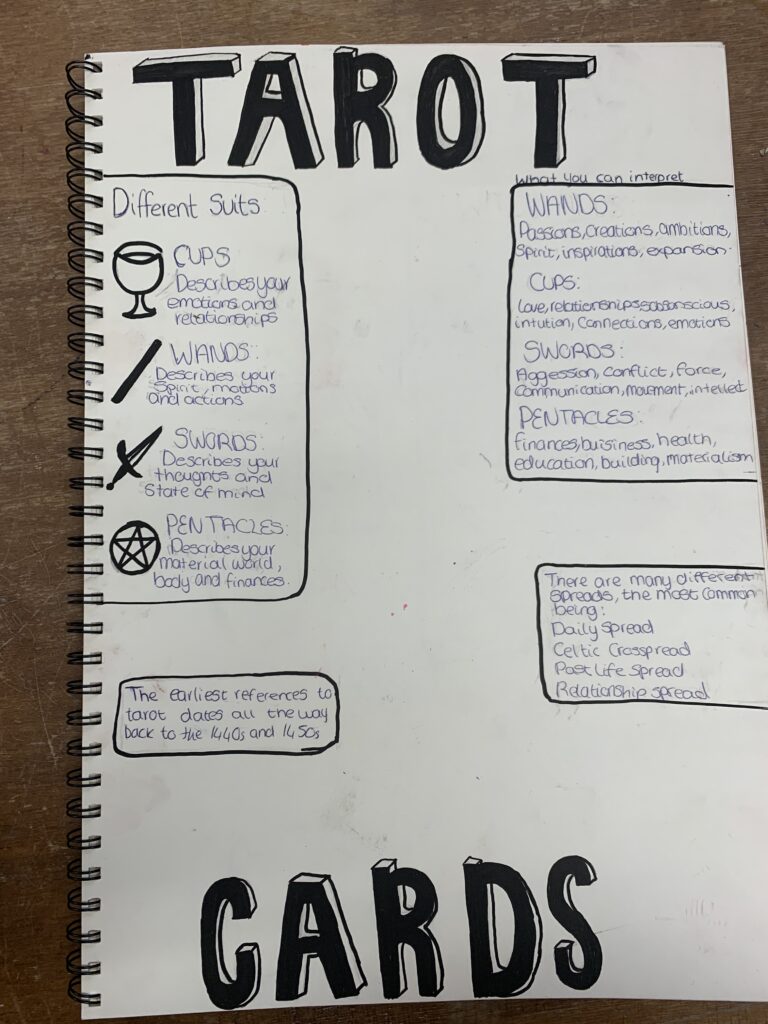 TAROT
Different Suits
CUPS
Describes your
emotions and
relationships
WANDS:
Describes your
Spirit, motions
and actions
SWORDS:
Describes your
thoughts and
State of mind
PENTACLES:
Describes your
material world,
body and finances.
The earliest references to
tarot dates all the way
back to the 1440s and 1450s
What you can interpret
WANDS:
Passions, creations, ambitions,
Spirit, inspirations, expansion.
CUPS:
love, relationships, subconscious,
intution, Connections, emotions
SWORDS:
Aggession, conflict, force,
communication, movement, intellect
PENTACLES:
finances, buisiness, health,
education, building, materialism
There are many different
spreads, the most common
being:
Daily Spread
Celtic Cross spread
Past life Spread
Relationship spread
CARDS